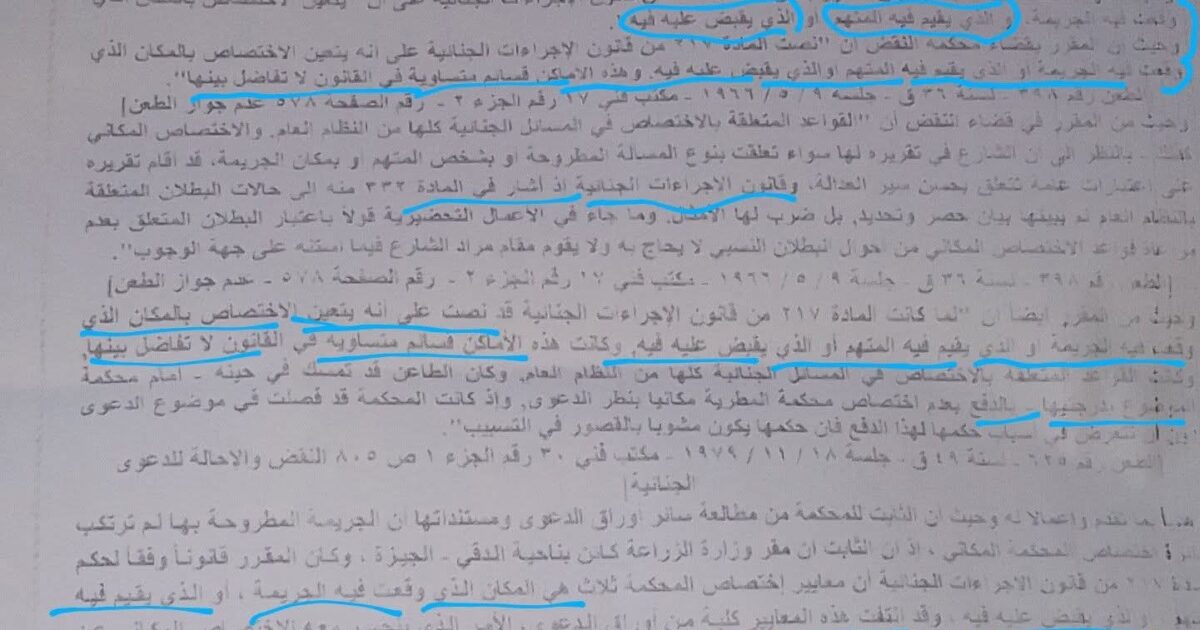 وقعت فيه الجريمة. و الذي يقيم فيه المتهم او الذي يقبض عليه فيه.
وحيث ان المقرر بقضاء محكمة النقض ان "نصت المادة ٢١٧ من قانون الإجراءات الجنائية على انه يتعين الاختصاص بالمكان الذي
وقعت فيه الجريمة او الذي يقيم فيه المتهم اوالذي يقبض عليه فيه. وهذه الأماكن قسائم متساوية في القانون لا تفاضل بينها".
[الطعن رقم ٣٩٨ - لسنة ٣٦ ق - جلسة ٩ / ٥ / ١٩٦٦ - مكتب فني ١٧ رقم الجزء ٢ - رقم الصفحة ٥٧٨ عدم جواز الطعن]
وحيث من المقرر في قضاء النقض أن "القواعد المتعلقة بالاختصاص في المسائل الجنائية كلها من النظام العام. والاختصاص المكاني
كذلك - بالنظر الى ان الشارع في تقريره لها سواء تعلقت بنوع المسألة المطروحة او بشخص المتهم او بمكان الجريمة، قد أقام تقريره
على اعتبارات عامة تتعلق بحسن سير العدالة، وقانون الاجراءات الجنائية إذ أشار في المادة ٣٣٢ منه الى حالات البطلان المتعلقة
بالنظام العام لم يبينها بيان حصر وتحديد، بل ضرب لها الأمثال. وما جاء في الأعمال التحضيرية قولاً باعتبار البطلان المتعلق بعدم
قواعد الاختصاص المكاني من احوال البطلان النسبي لا يحاج به ولا يقوم مقام مراد الشارع فيما استنه على جهة الوجوب".
[الطعن رقم ٣٩٨ - لسنة ٣٦ ق - جلسة ٩ / ٥ / ١٩٦٦ - مكتب فني ١٧ رقم الجزء ٢ - رقم الصفحة ٥٧٨ - عدم جواز الطعن]
وحيث من المقرر ايضاً ان "لما كانت المادة ٢١٧ من قانون الإجراءات الجنائية قد نصت على انه يتعين الاختصاص بالمكان الذي
وقعت فيه الجريمة او الذي يقيم فيه المتهم أو الذي يقبض عليه فيه، وكانت هذه الأماكن قسائم متساوية في القانون لا تفاضل بينها،
وكانت القواعد المتعلقة بالاختصاص في المسائل الجنائية كلها من النظام العام. وكان الطاعن قد تمسك في حينه - أمام محكمة
الموضوع بدرجتيها - بالدفع بعدم اختصاص محكمة المطرية مكانيا بنظر الدعوى، وإذ كانت المحكمة قد فصلت في موضوع الدعوى
دون أن تتعرض في أسباب حكمها لهذا الدفع فان حكمها يكون مشوبا بالقصور في التسبيب".
[الطعن رقم ٦٢٥ - لسنة ٤٩ ق - جلسة ١٨ / ١١ / ١٩٧٩ - مكتب فني ٣٠ رقم الجزء ١ ص ٨٠٥ النقض والاحالة للدعوى
الجنائية]
ما تقدم واعمالا له وحيث أن الثابت للمحكمة من مطالعة سائر اوراق الدعوى ومستنداتها أن الجريمة المطروحة بها لم ترتكب
اختصاص المحكمة المكاني، اذ ان الثابت ان مقر وزارة الزراعة كاين بناحية الدقي - الجيزة، وكان المقرر قانوناً وفقاً لحكم
من قانون الاجراءات الجنائية أن معايير إختصاص المحكمة ثلاث هي المكان الذي وقعت فيه الجريمة، أو الذي يقيم فيه
والذي يقبض عليه فيه، وقد انتفت هذه المعايير كلية من أوراق الدعوى، الأمر الذي